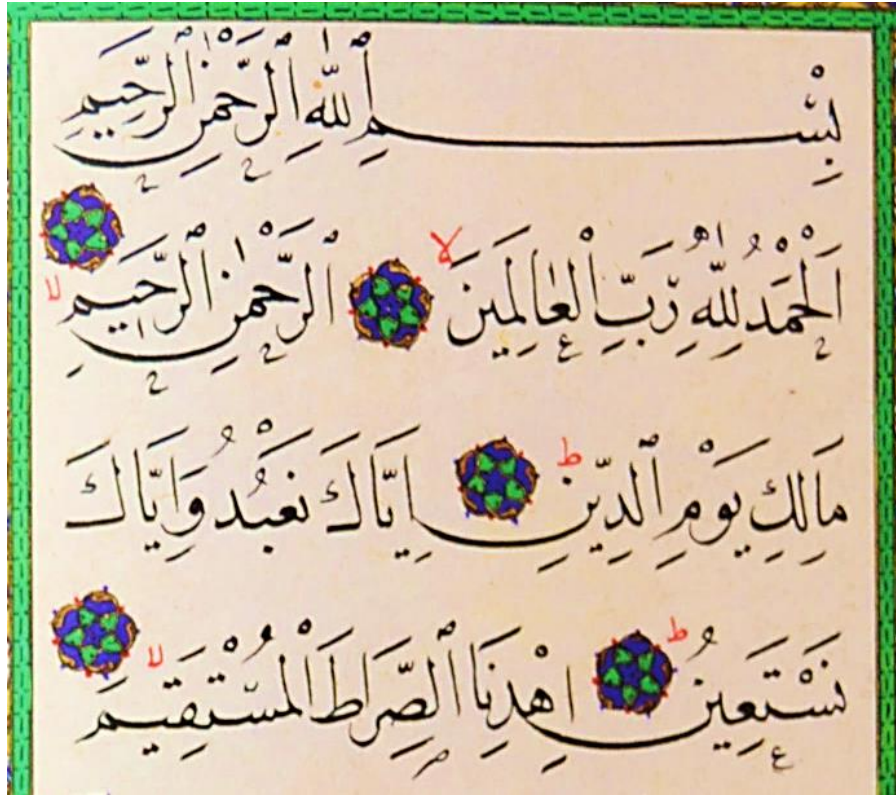 بِسْمِ ٱللّٰهِ ٱلرَّحْمٰنِ ٱلرَّحِيمِ
اَلْحَمْدُ لِلّٰهِ رَبِّ ٱلْعَالَمِينَ لا ٱلرَّحْمٰنِ ٱلرَّحِيمِ لا
مَالِكِ يَوْمِ ٱلدِّينِ ط اِيَّاكَ نَعْبُدُ وَاِيَّاكَ
نَسْتَعِينُ ط اِهْدِنَا ٱلصِّرَاطَ ٱلْمُسْتَقِيمَ لا